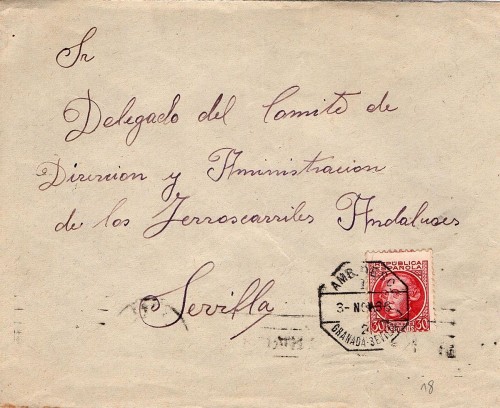 Sr
Delegado del Comité de
Dirercion y Aministracion
de los Ferroscarriles Andaluses
Sevilla
REPÚBLICA
ESPAÑOLA
30
30
AMB. DESC.
1
3- NOV 36
2
GRANADA-SEVILLA
18